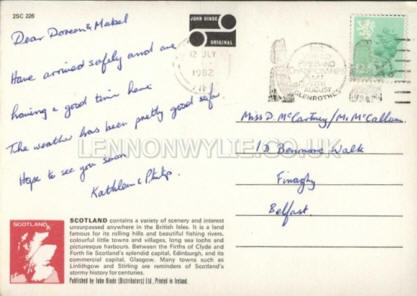 2SC 226
JOHN HINDE
ORIGINAL
12 JLY
1982
AUGUST
GLENROTHES
Dear Doreen & Mabel
Have arrived safely and are
having a good time here
The weather has been pretty good so far
Hope to see you soon
Kathleen & Philip
Miss D. McCartney / M. McCallum
Benmore Walk
Finaghy
Belfast.
LENNONWYLIE.CO.UK
SCOTLAND
SCOTLAND contains a variety of scenery and interest
unsurpassed anywhere in the British Isles. It is a land
famous for its rolling hills and beautiful fishing rivers,
colourful little towns and villages, long sea lochs and
picturesque harbours. Between the Firths of Clyde and
Forth lie Scotland's splendid capital, Edinburgh, and its
commercial capital, Glasgow. Many towns such as
Linlithgow and Stirling are reminders of Scotland's
stormy history for centuries.
Published by John Hinde (Distributors) Ltd., Printed in Ireland.